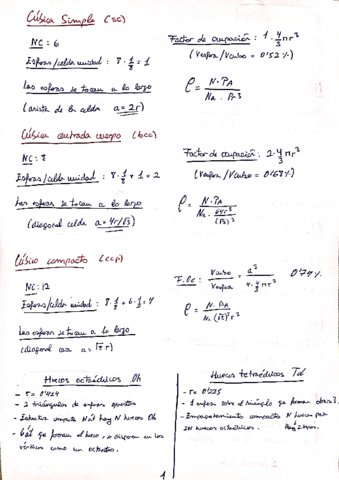 Cúbica Simple (sc)
NC: 6
Esferas/celda unidad: 8·1/8 = 1
Las esferas se tocan a lo largo
(arista de la celda a=2r)
Factor de ocupación: 1·4/3πr³
(Vesfera/Vcubo = 0'52 %)
ρ = N·PA / Na·
Cúbica centrada cuerpo (bcc)
NC: 8
Esferas/celda unidad: 8·1/8 + 1 = 2
Las esferas se tocan a lo largo
(diagonal celda a=4r/√3)
Factor de ocupación: 2·4/3πr³
(Vesfera/Vcubo = 0'68%)
ρ = N·PA / Na·64r³/(√3)³
Cúbico compacto (ccp)
NC: 12
Esferas/celda unidad: 8·1/8 + 6·1/2 = 4
Las esferas se tocan a lo largo
(diagonal cara a=
F.Oc: Vcubo/Vesfera = a³ / 4·4/3πr³ 0'74%
ρ = N·PA / Na
Huecos octaédricos Oh
- r = 0'414
- 2 triángulos de esferas opuestos
- Estructura compacta N át hay N huecos Oh
- 6 át que forman el hueco, se disponen en los
vértices como un octaedro.
Huecos tetraédricos Td
- r = 0'225
- 1 esfera sobre el triángulo que forman otras 3.
- Empaquetamiento compacto N huecos por
2N huecos octaédricos. Hay 2 tipos.
1